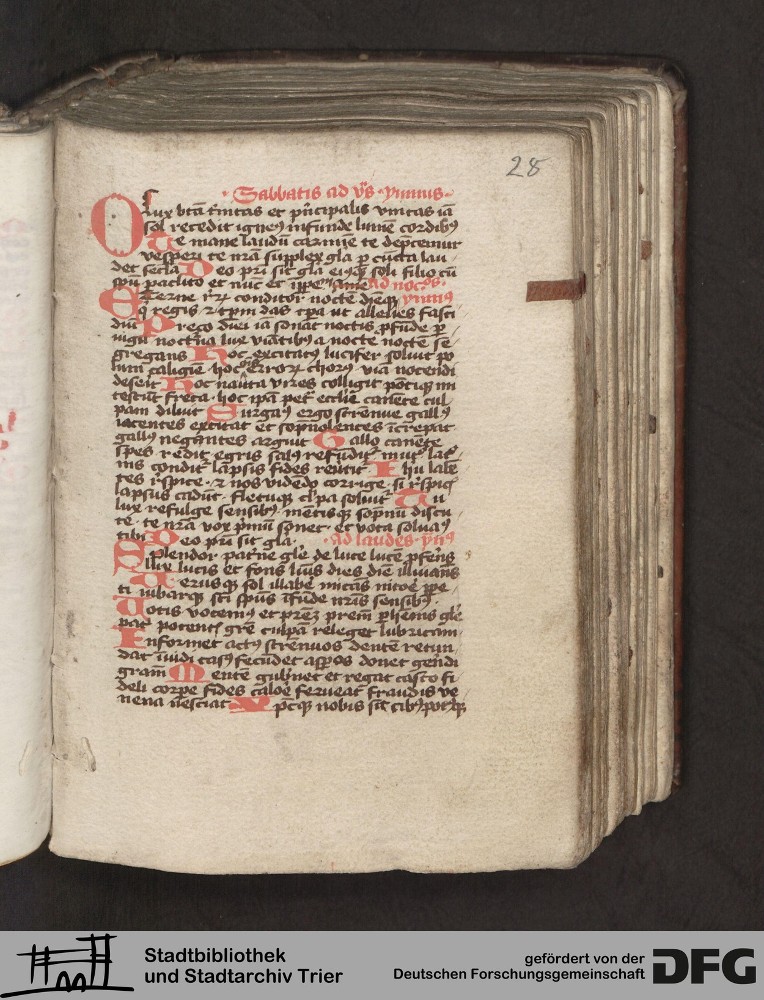 28
· Sabbatis ad v̄s · ymnus ·
O lux btā t'nitas et p'ncipalis vnitas iā
sol recedit igneꝰ infunde lumē cordibꝰ
Te mane laudū carmīe te dep̄cemur
vesperi te nr̄a supplex gl̄a ꝑ cūcta lau
det secla Deo pr̄i sit gl̄a eiꝰqꝫ soli filio cū
spū paclito et nūc et ī ppe amē ad nocꝰ ·
Eterne rꝝ conditor noctē diēqꝫ ymnꝰ
q' regis ⁊ tpm̄ das tpa ut alleues fasti
diū Preco diei iā sonat noctis ꝓfūde ꝑ
uigil nocturna lux viātibꝰ a nocte noctē se
gregans Hoc excitatꝰ lucifer soluit po
lum caligīe · hoc errorꝝ chorꝰ · via nocendi
deserit Hoc nauta vires colligit pōtiqꝫ mi
tescūt freta · hoc ipā pet' ecclīe canēte cul
pam diluit Surgaꝰ ergo strēnue gallꝰ
iacentes excitat et sōpnolentes īcrepat
gallꝰ negantes arguit Gallo canēte
spes redit egris salꝰ refūdit' muc' lat'
nis condit' lapsis fides reu'tit' Ihu labē
tes r̄spice · ⁊ nos vidēdo corrige · si r̄spic'
lapsus cadūt · fletuqꝫ cl'pa soluit' Tu
lux refulge sensibꝰ · mētisqꝫ sopnū discu
te · te nr̄a vox p'mū sonet · et vota soluaꝰ
tibi Deo pr̄i sit gla · · Ad laudes · ymꝰ
Splendor patrne gl'e de luce lucē ꝓferēs
lux lucis et fons lūis dies diē illuminās
Verusqꝫ sol illabe' micās nitoē ppe
ti iubarqꝫ sc̄i spūs īfūde nr̄is sensibꝰ ·
Votis vocemꝰ et prēꝫ prem̄ p'hēnis gl'e
pat' potent' gr̄e culpā releget lubricam
Informet actꝰ strēnuos dentē retun
dat īuidi casꝰ secūdet asꝑos donet gerēdi
gram̄ Mentē gub'net et regat casto fi
deli corpe fides caloē ferueat fraudis ve
nena nesciat Xp̄cqꝫ nobis sit cibꝰ potꝰqꝫ
Stadtbibliothek
und Stadtarchiv Trier
gefördert von der
Deutschen Forschungsgemeinschaft
DFG